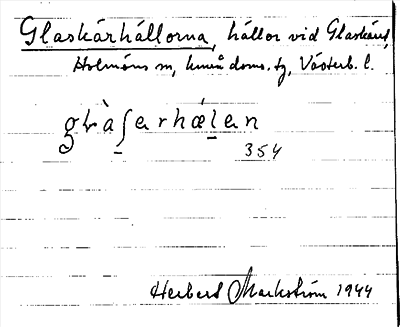 Glaskärhällorna, hällor vid Glaskäret,
Holmöns sn, Umeå doms. tg, Västerb. l.
354
Herbert Markström 1944